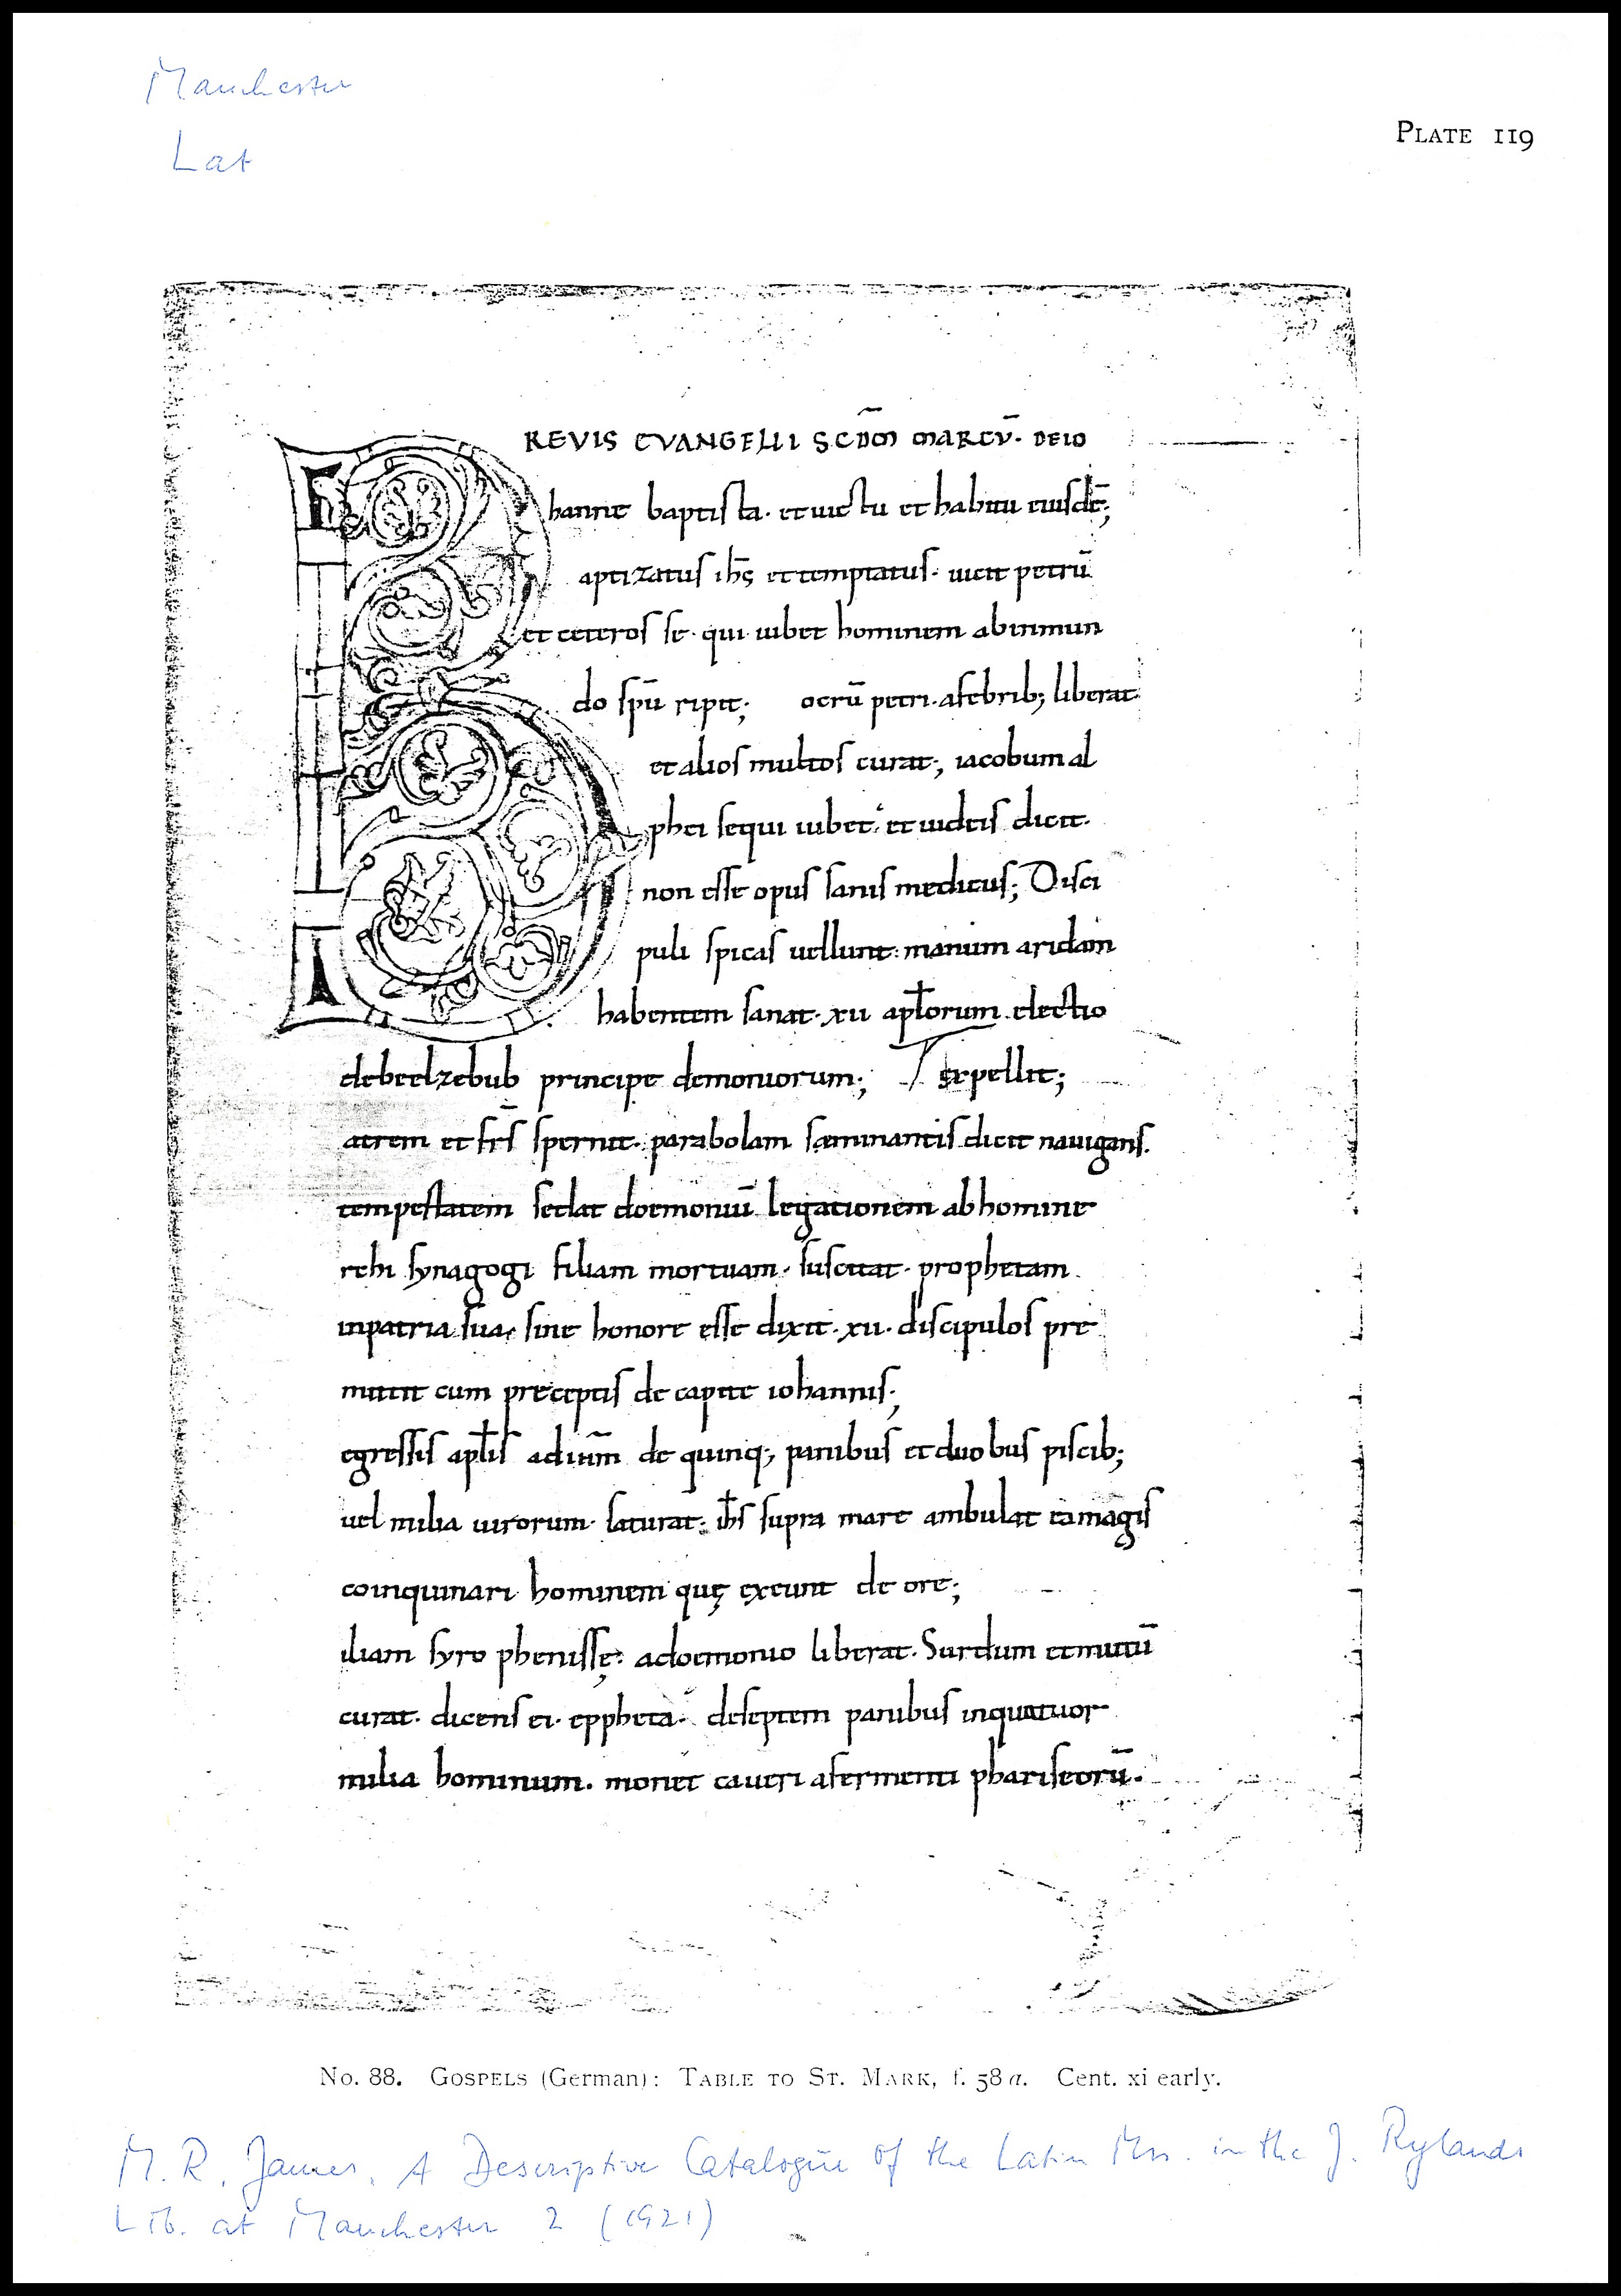 Manchester
Lat
PLATE 119
REVIS EVANGELII SCDM MARCŪ· DEIO
hanne baptista· et uictu et habitu eiusdē;
aptizatus ihs̄ et temptatus· uicit petrū
et ceteros se· qui iubet hominem abinmun
do spū ripit; ocrū petri· afebrib; liberat
et alios multos curat; iacobum al
phei sequi iubet· et uideis dicit·
non esse opus sanis medicus; Disci
puli spicas uellunt: manum aridam
habentem sanat· xii apƚorum electio
debeelzebub principe demoniorum; expellit;
atrem et frs̄ spernit· parabolam sæminantis dicit nauigans·
tempestatem sedat doemoniū legationem abhomine
rchi synagogi filiam mortuam· suscitat· prophetam
inpatria sua· sine honore esse dixit· xii· discipulos pre
mittit cum preceptis de capite iohannis;
egressis apƚis adiuīm de quinq; panibus et duobus piscib;
uel milia uirorum· saturat: ihs̄ supra mare ambulat ea magis
coinquinari hominem quę exeunt de ore;
iliam syro phenissę: adoemonio liberat· Surdum et mutū
curat· dicens ei· eppheta· deseptem panibus inquatuor
milia hominum· monet caueri afermenti phariseorū·
No. 88. GOSPELS (German): TABLE TO ST. MARK, f. 58 a. Cent. xi early.
M. R. James, A Descriptive Catalogue of the Latin Mss. in the J. Rylands
Lib. at Manchester 2 (1921)